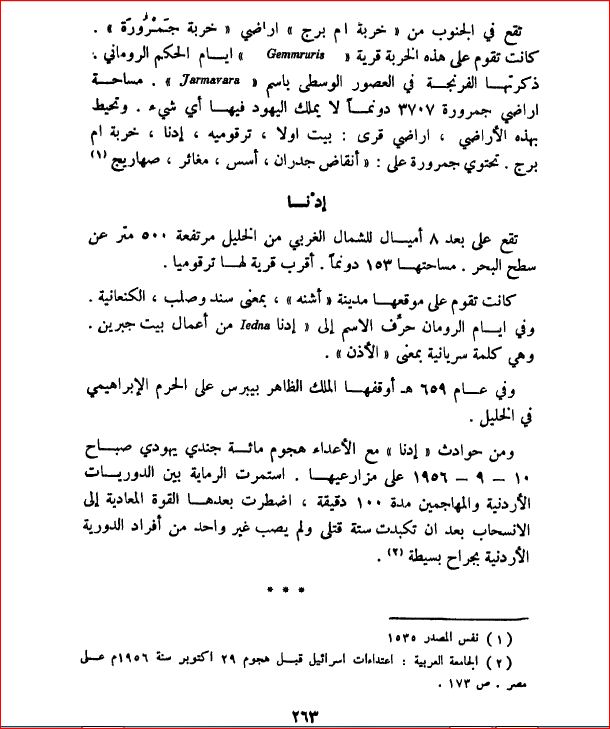 تقع في الجنوب من « خربة ام برج » اراضي « خربة جَمْرُورَة » .
كانت تقوم على هذه الخربة قرية « Gemmruris » ايــام الحكم الروماني .
ذكرتهـا الفرنجـة في العصور الوسطى باسم « Jarmavara » . مساحـة
اراضي جمرورة ٣٧٠٧ دونمـاً لا يملك اليهود فيهـا أي شيء . وتحيط
بهذه الأراضي ، اراضي قرى : بيت اولا ، ترقوميه ، إدنا ، خربة ام
برج . تحتوي جمرورة على : « أنقاض جدران ، أسس ، مغائر ، صهاريج (١)
إدْنـا
تقع على بعد ٨ أميـال للشمال الغربي من الخليل مرتفعة ٥٠٠ متر عن
سطح البحر . مساحتهـا ١٥٣ دونماً . أقرب قرية لهـا ترقوميا .
كانت تقوم على موقعهـا مدينة « أشنه » ، بمعنى سند وصلب ، الكنعانية .
وفي ايـام الرومان حرِّف الاسم إلى « إدنا Iedna من أعمال بيت جبرين .
وهي كلمة سريانية بمعنى « الأذن » .
وفي عـام ٦٥٩ هـ أوقفهـا الملك الظاهر بيبرس على الحرم الإبراهيمي
في الخليل .
ومن حوادث « إدنا » مع الأعداء هجوم مائـة جندي يهودي صبـاح
١٠ – ٩ – ١٩٥٦ على مزارعيهـا . استمرت الرماية بين الدوريـات
الأردنية والمهاجمين مدة ١٠٠ دقيقة ، اضطرت بعدهـا القوة المعادية إلى
الانسحاب بعد ان تكبدت ستة قتلى ولم يصب غير واحد من أفراد الدورية
الأردنية بجراح بسيطة (٢) .
* * *
( ١ ) نفس المصدر ١٥٣٥
( ٢ ) الجامعة العربية : اعتداءات اسرائيل قبـل هجوم ٢٩ اكتوبر سنة ١٩٥٦م عـلى
مصر . ص ١٧٣ .
٢٦٣